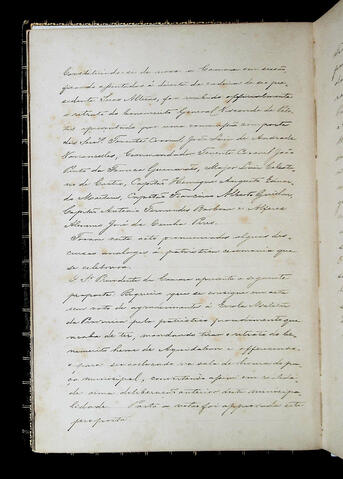 Constituindo-se de novo a Camara em sessão,
ficando assentados á direita da cadeira do pre-
sidente Seus Altezas, foi recebido
o retrato do benemerito General Rozendo de
apresentado por uma commissão composta
dos Senrs. Tenentes Coronel João Luis de Andrade
Vasconcellos, Commendador Tenente Coronel João
Pinto da Fonseca Guimarães, Major Luis Celesti-
no de Castro, Capitão Henrique Augusto Eduar-
do Martins, Capitão Francisco Alberto Guillon,
Capitão Antonio Fernandes Barbosa e Alferes
Alumno José da Cunha Pires.
Foram neste acto pronunciados alguns dis-
cursos analogos á patriotica ceremonia que
se celebrava.
O Sr. Presidente da Camara apresenta a seguinte
proposta. Requeiro que se consigne em acta
um voto de agradecimento á Escola Militar
da Provincia pelo patriotico procedimento que
acaba de ter, mandando tirar o retrato do be-
nemerito heroe de Aquidaban e offerecendo-
o para ser collocado na sala de honra do pa-
ço municipal, convertendo assim em realida-
de uma deliberação anterior desta municipa-
lidade. Posta a votos foi approvada esta
proposta